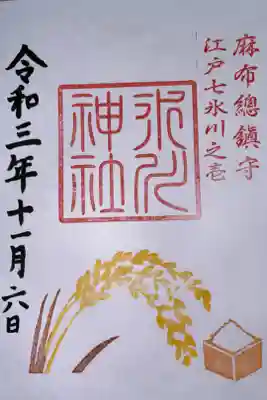 麻布總鎮守
江戸七氷川之壱
氷川神社
令和三年十一月六日